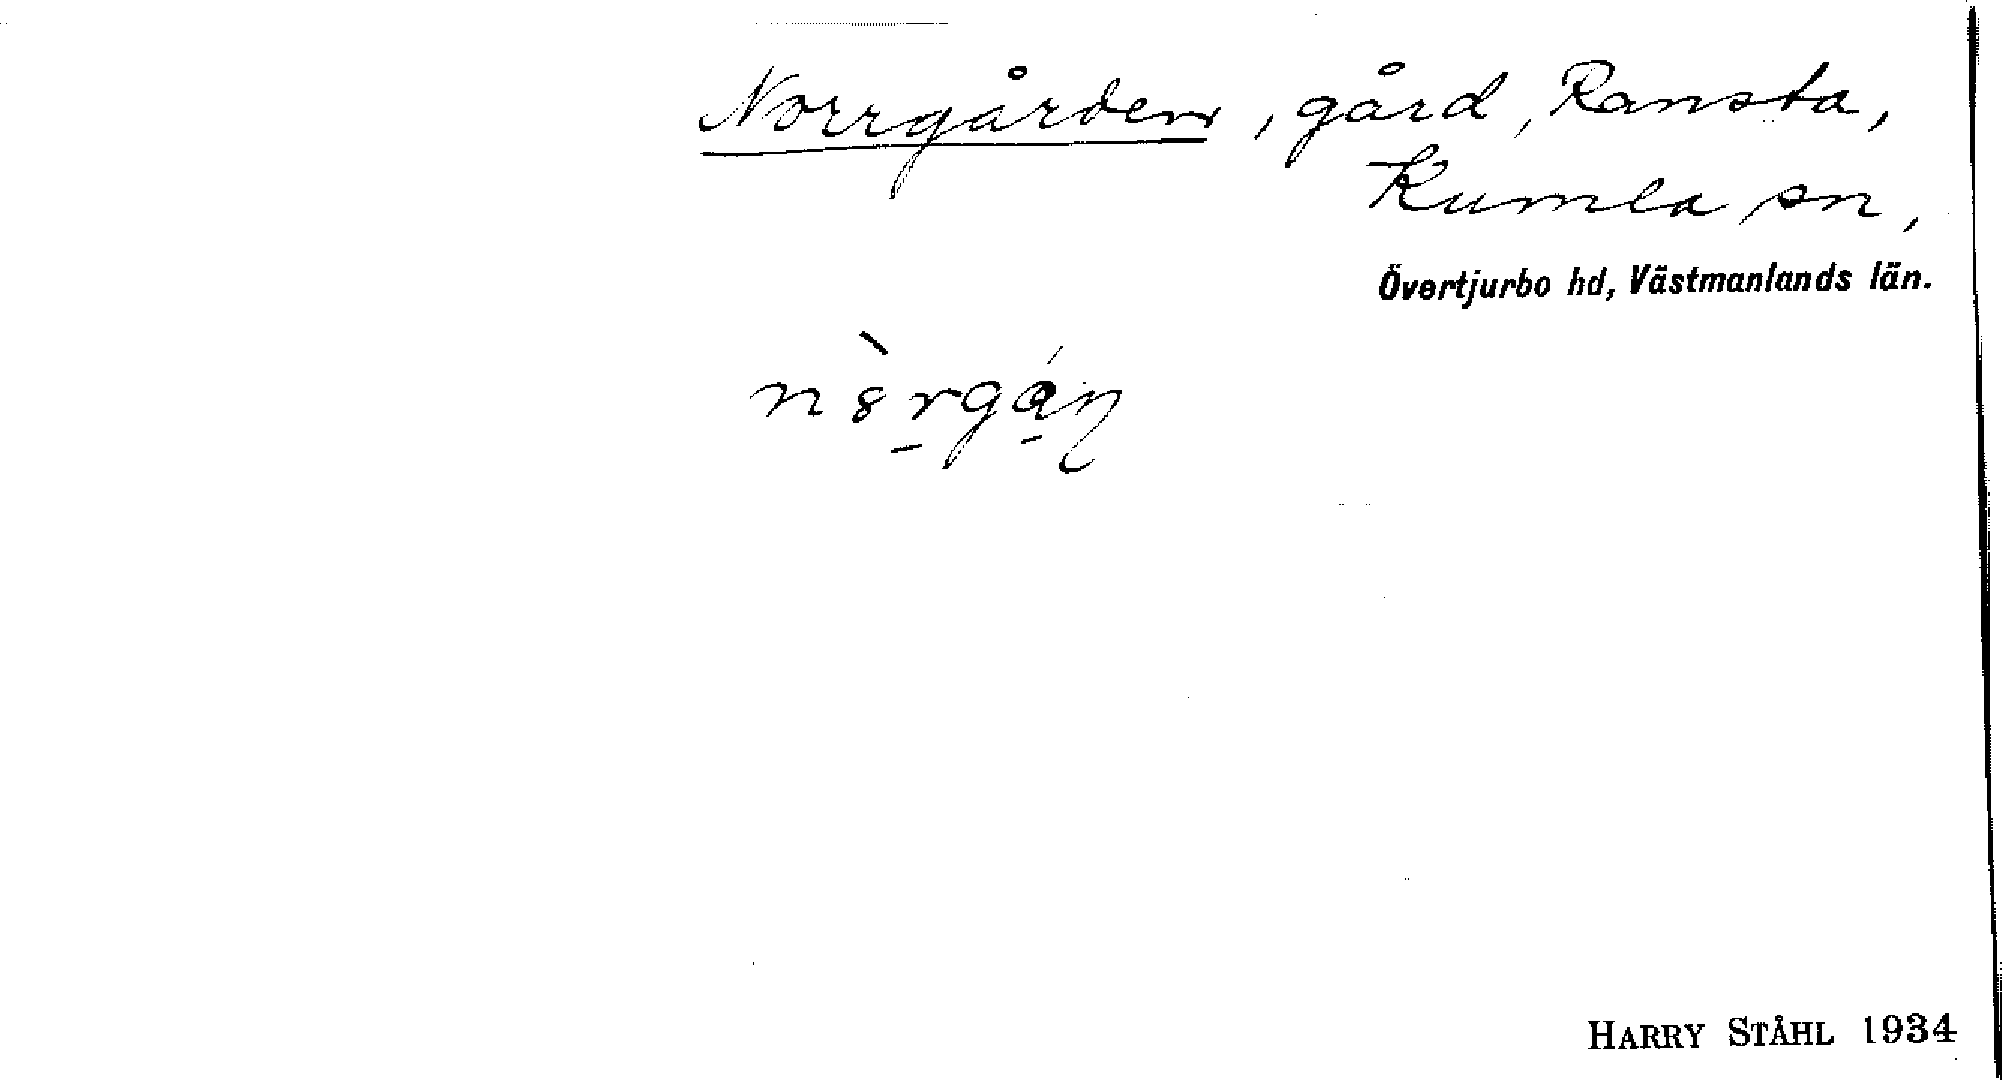 Norrgården, gård, Ransta,
Kumla sn,
Övertjurbo hd, Västmanlands län.
HARRY STÅHL 1934